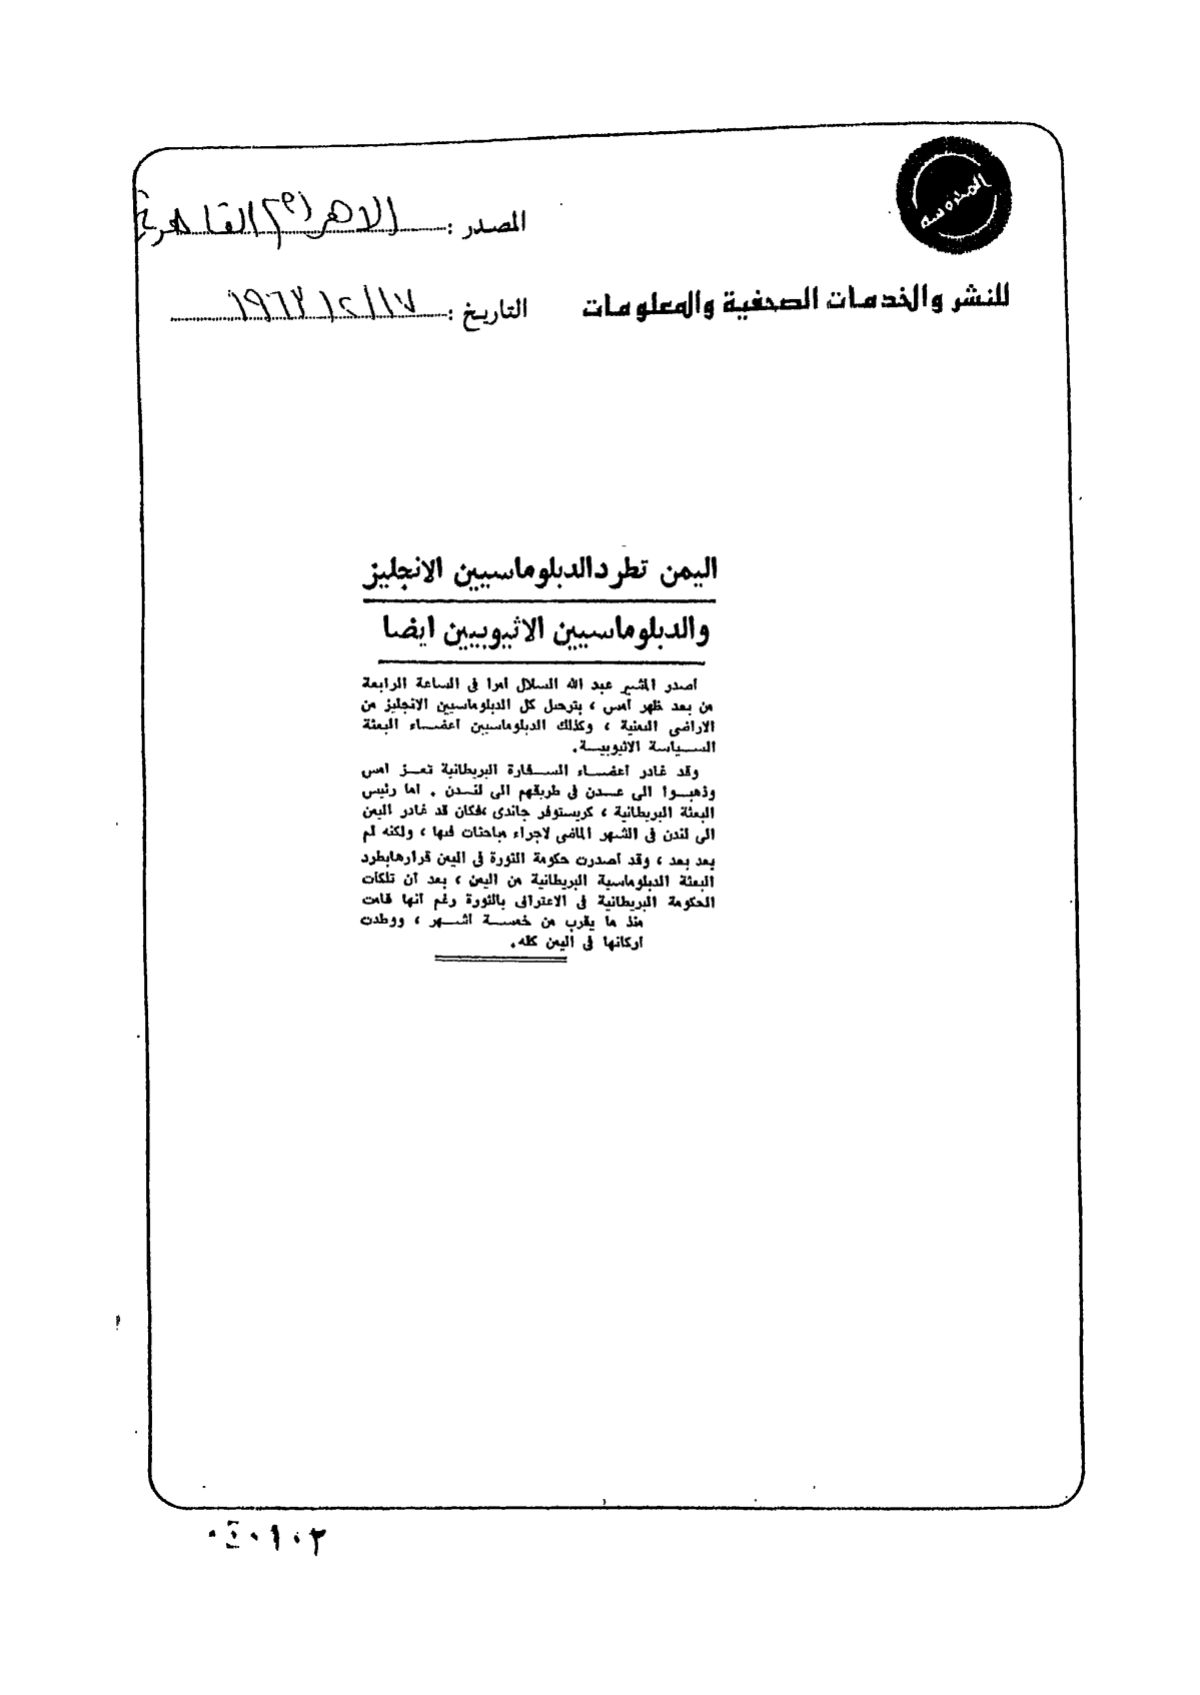 المحروسة
المصدر : الاهرام القاهرية
للنشر والخدمات الصحفية والمعلومات
التاريخ : ١٩٦٣/٢/١٧
اليمن تطرد الدبلوماسيين الانجليز
والدبلوماسيين الاثيوبيين ايضا
أصدر المشير عبد الله السلال أمرا فى الساعة الرابعة
من بعد ظهر أمس ، بترحيل كل الدبلوماسيين الانجليز من
الاراضى اليمنية ، وكذلك الدبلوماسيين اعضاء البعثة
السياسة الاثيوبية .
وقد غادر اعضاء السفارة البريطانية تعز امس
وذهبوا الى عدن فى طريقهم الى لندن . اما رئيس
البعثة البريطانية ، كريستوفر جاندى ،فكان قد غادر اليمن
الى لندن فى الشهر الماضى لاجراء مباحثات فيها ، ولكنه لم
يعد بعد ، وقد أصدرت حكومة الثورة فى اليمن قرارها بطرد
البعثة الدبلوماسية البريطانية من اليمن ، بعد أن تلكأت
الحكومة البريطانية فى الاعتراف بالثورة رغم أنها قامت
منذ ما يقرب من خمسة أشهر ، ووطدت
اركانها فى اليمن كله .